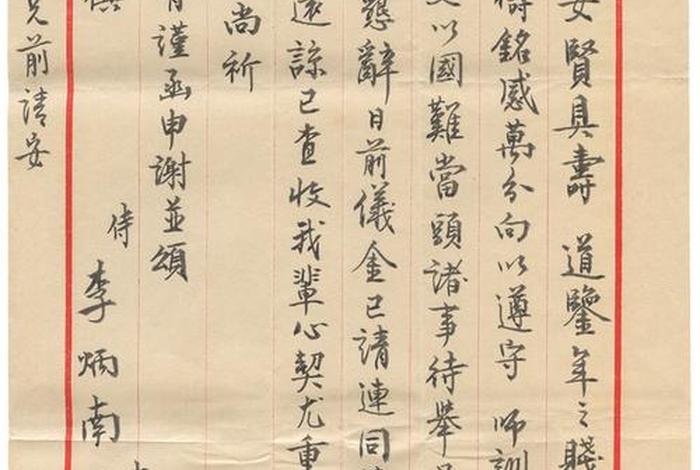 安賢具壽 道鑒年之賤
銘感萬分向以遵守 師訓
以國難當頭諸事待舉
懇辭日前儀金已請連同
還諒已查收我輩心契尤重
尚祈
謹函申謝並頌
侍 李炳南
兄前請安